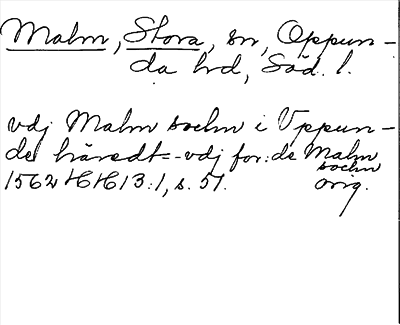 Malm, Stora, sn, Oppun-
da hd, Söd. l.
vdj Malm sochn i Vppun-
de häredt = vdj for:de Malm
sochn
1562 HH 13:1, s. 51. orig.